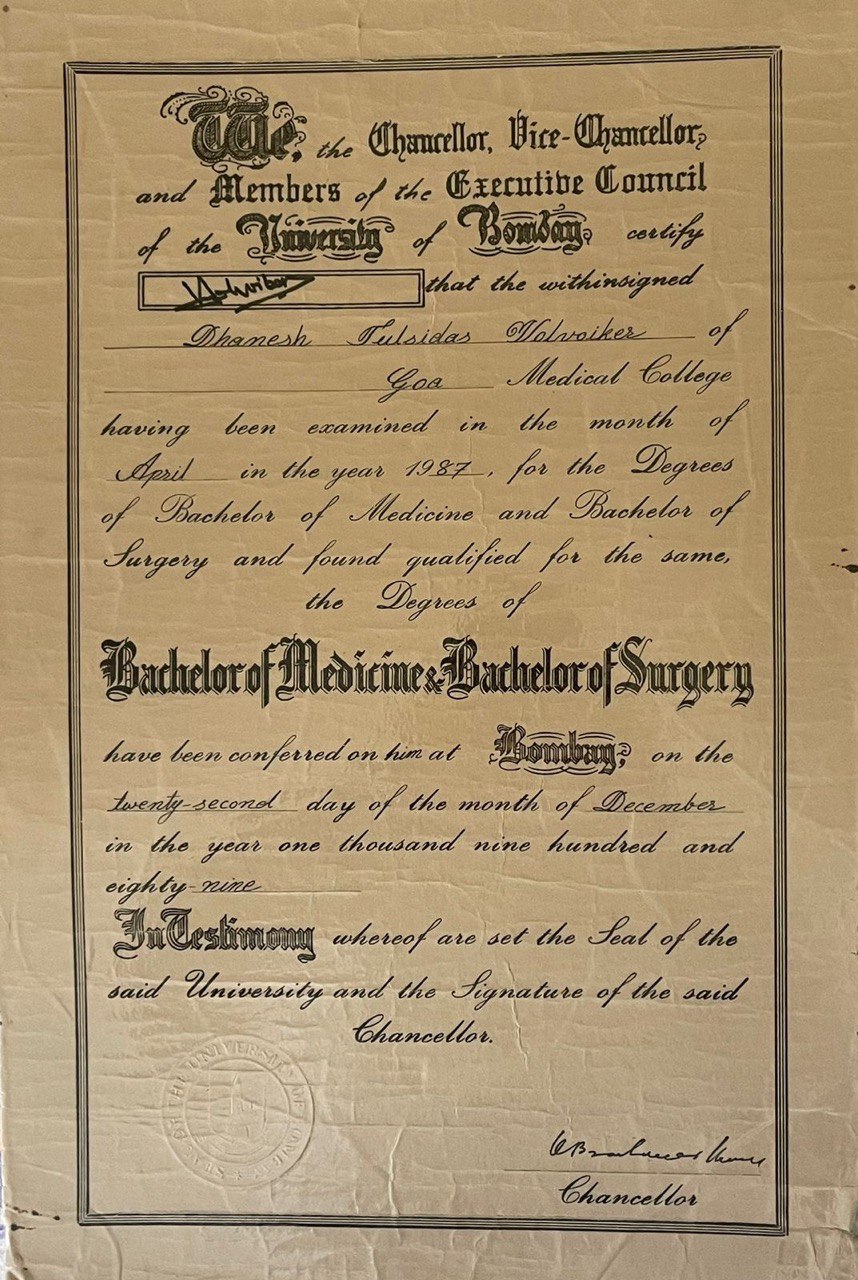 We, the Chancellor, Vice-Chancellor,
and Members of the Executive Council
of the University of Bombay, certify
that the withinsigned
Dhanesh Tulsidas Volvoiker of
Goa Medical College
having been examined in the month of
April in the year 1987, for the Degrees
of Bachelor of Medicine and Bachelor of
Surgery and found qualified for the same,
the Degrees of
Bachelor of Medicine & Bachelor of Surgery
have been conferred on him at Bombay, on the
twenty-second day of the month of December
in the year one thousand nine hundred and
eighty-nine
In Testimony whereof are set the Seal of the
said University and the Signature of the said
Chancellor.
OF THE UNIVERSITY OF
Chancellor